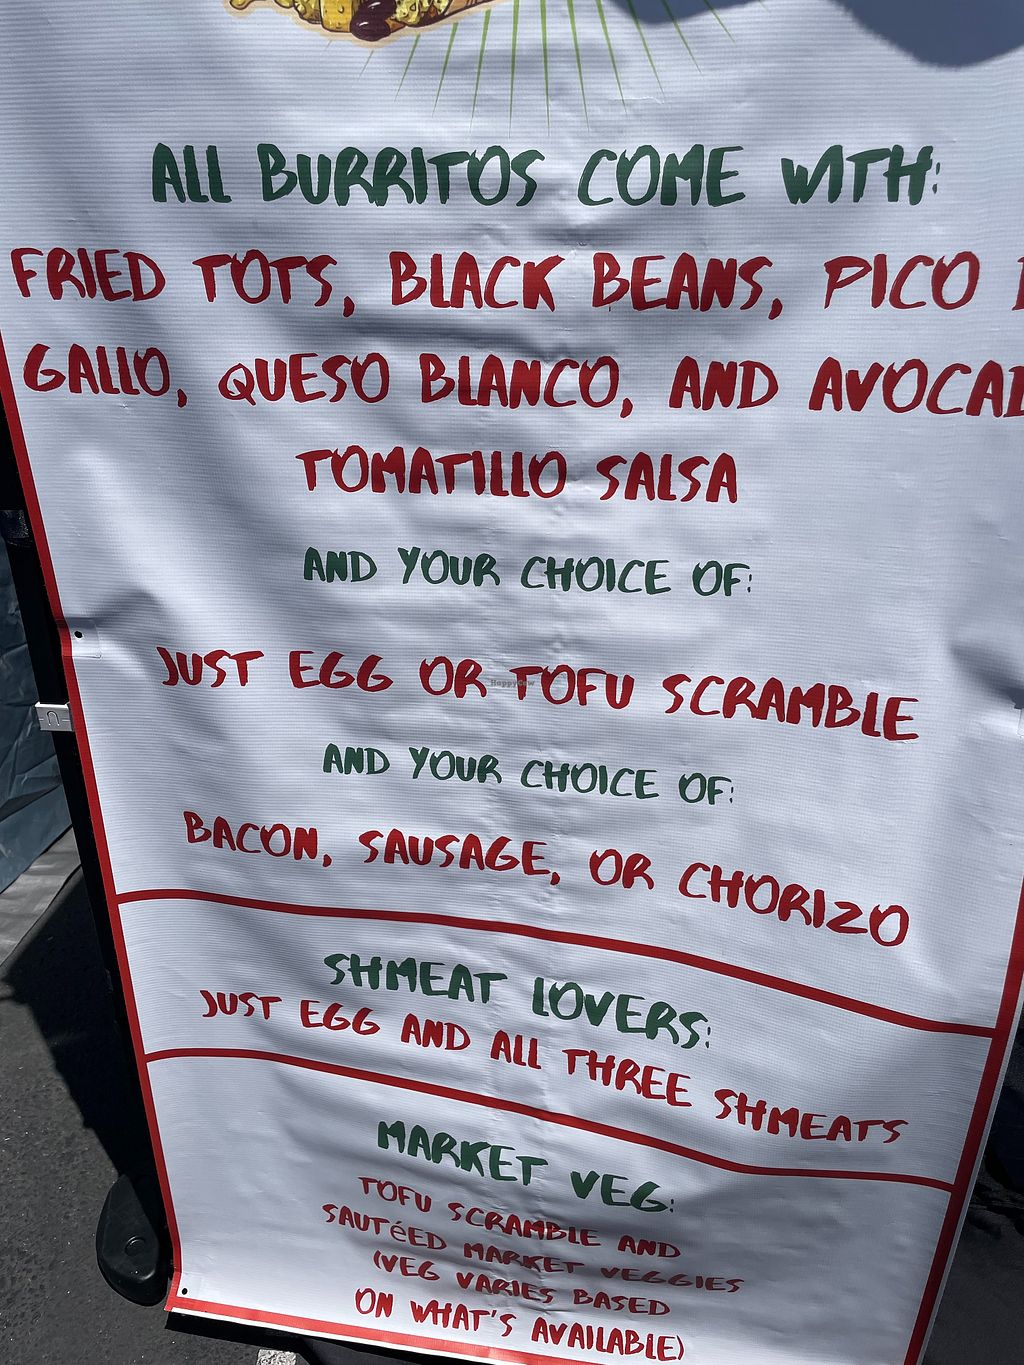 ALL BURRITOS COME WITH:
FRIED TOTS, BLACK BEANS, PICO
GALLO, QUESO BLANCO, AND
TOMATILLO SALSA
AND YOUR CHOICE OF:
JUST EGG OR TOFU SCRAMBLE
HappyCow
AND YOUR CHOICE OF:
BACON, SAUSAGE, OR CHORIZO
SHMEAT LOVERS:
JUST EGG AND ALL THREE SHMEATS
MARKET VEG:
TOFU SCRAMBLE AND
SAUTéED MARKET VEGGIES
(VEG VARIES BASED
ON WHAT'S AVAILABLE)